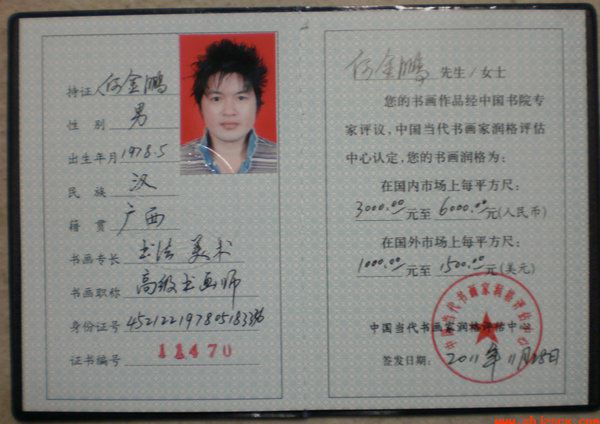 持证 何金鹏
性别 男
出生年月 1978.5
民族 汉
籍贯 广西
书画专长 书法 美术
书画职称 高级书画师
身份证号
证书编号 11470
何金鹏 先生/女士
您的书画作品经中国书院专
家评议,中国当代书画家润格评估
中心认定,您的书画润格为:
在国内市场上每平方尺:
3000.00元至6000.00元(人民币)
在国外市场上每平方尺:
1000.00元至1500.00元(美元)
中国当代书画家润格评估中心
签发日期: 2011年11月28日
中国当代书画家润格评估中心